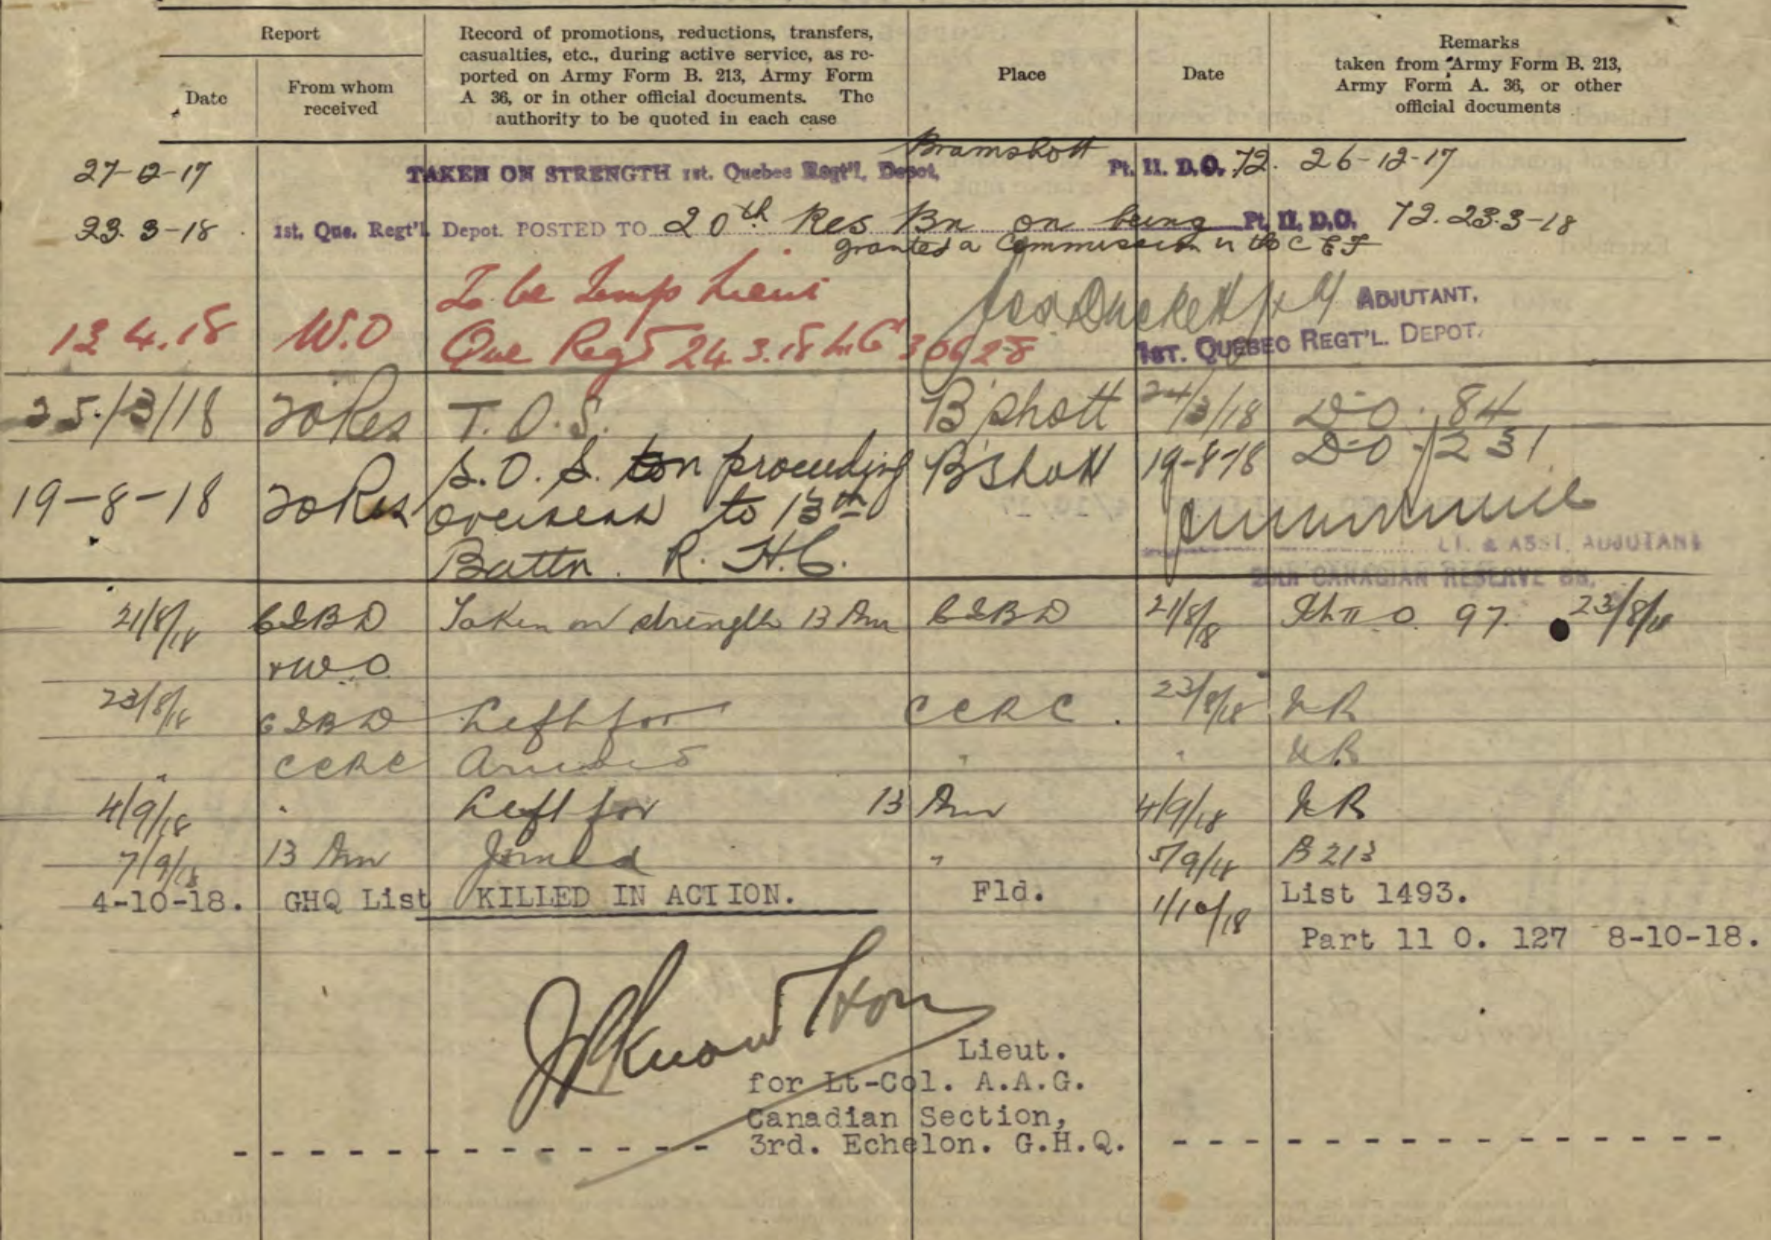 Report
Date
From whom
received
Record of promotions, reductions, transfers,
casualties, etc., during active service, as re-
ported on Army Form B. 213, Army Form
A 36, or in other official documents. The
authority to be quoted in each case
Place
Date
Remarks
taken from Army Form B. 213,
Army Form A. 36, or other
official documents
Bramshott
27-12-17 TAKEN ON STRENGTH 1st. Quebec Regt'l. Depot, Pt. II. D.O. 72. 26-12-17
23.3-18. 1st. Que. Regt'l. Depot. POSTED TO 20th Res Bn on being Pt. II. D.O. 72. 23.3-18
granted a Commission in the C E F
To be Temp Lieut
ADJUTANT,
13 4.18 W.O Que Regt 24.3.18 L.G 30628 1ST. QUEBEC REGT'L. DEPOT.
25/3/18 20 Res T.O.S. B'shott 24/3/18 D.O. 84
S.O.S. on proceeding B'shott 19-8-18 D.O. 231
19-8-18 20 Res overseas to 13th
LT. & ASST. ADJUTANT
Battn. R. H. C. 20th CANADIAN RESERVE BN.
21/8/18 CGBD Taken on strength 13 Bn CGBD 21/8/18 Pt II O 97. 23/8/18
W.O.
23/8/18 CGBD Left for CCRC. 23/8/18 NR
" CCRC Arrived " " NR
4/9/18 " Left for 13 Bn 4/9/18 NR
7/9/18 13 Bn Joined " 5/9/18 B 213
4-10-18. GHQ List KILLED IN ACTION. Fld. 1/10/18 List 1493.
Part 11 O. 127 8-10-18.
Lieut.
for Lt-Col. A.A.G.
Canadian Section,
3rd. Echelon. G.H.Q.